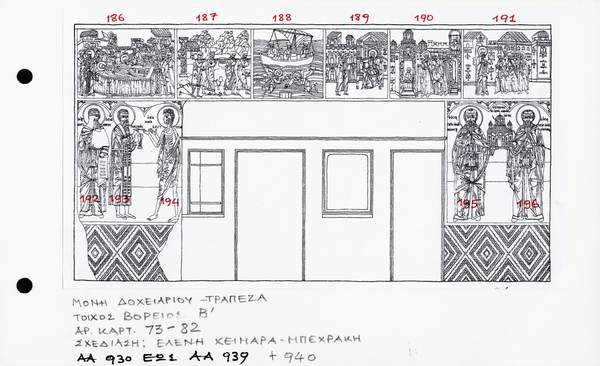 186 187 188 189 190 191
192 193 194 195 196
ΜΟΝΗ ΔΟΧΕΙΑΡΙΟΥ - ΤΡΑΠΕΖΑ
ΤΟΙΧΟΣ ΒΟΡΕΙΟΣ Β'
ΑΡ. ΚΑΡΤ. 73-82
ΣΧΕΔΙΑΣΗ: ΕΛΕΝΗ ΧΕΙΜΑΡΑ-ΜΠΕΧΡΑΚΗ
ΑΑ 930 ΕΩΣ ΑΑ 939 + 940